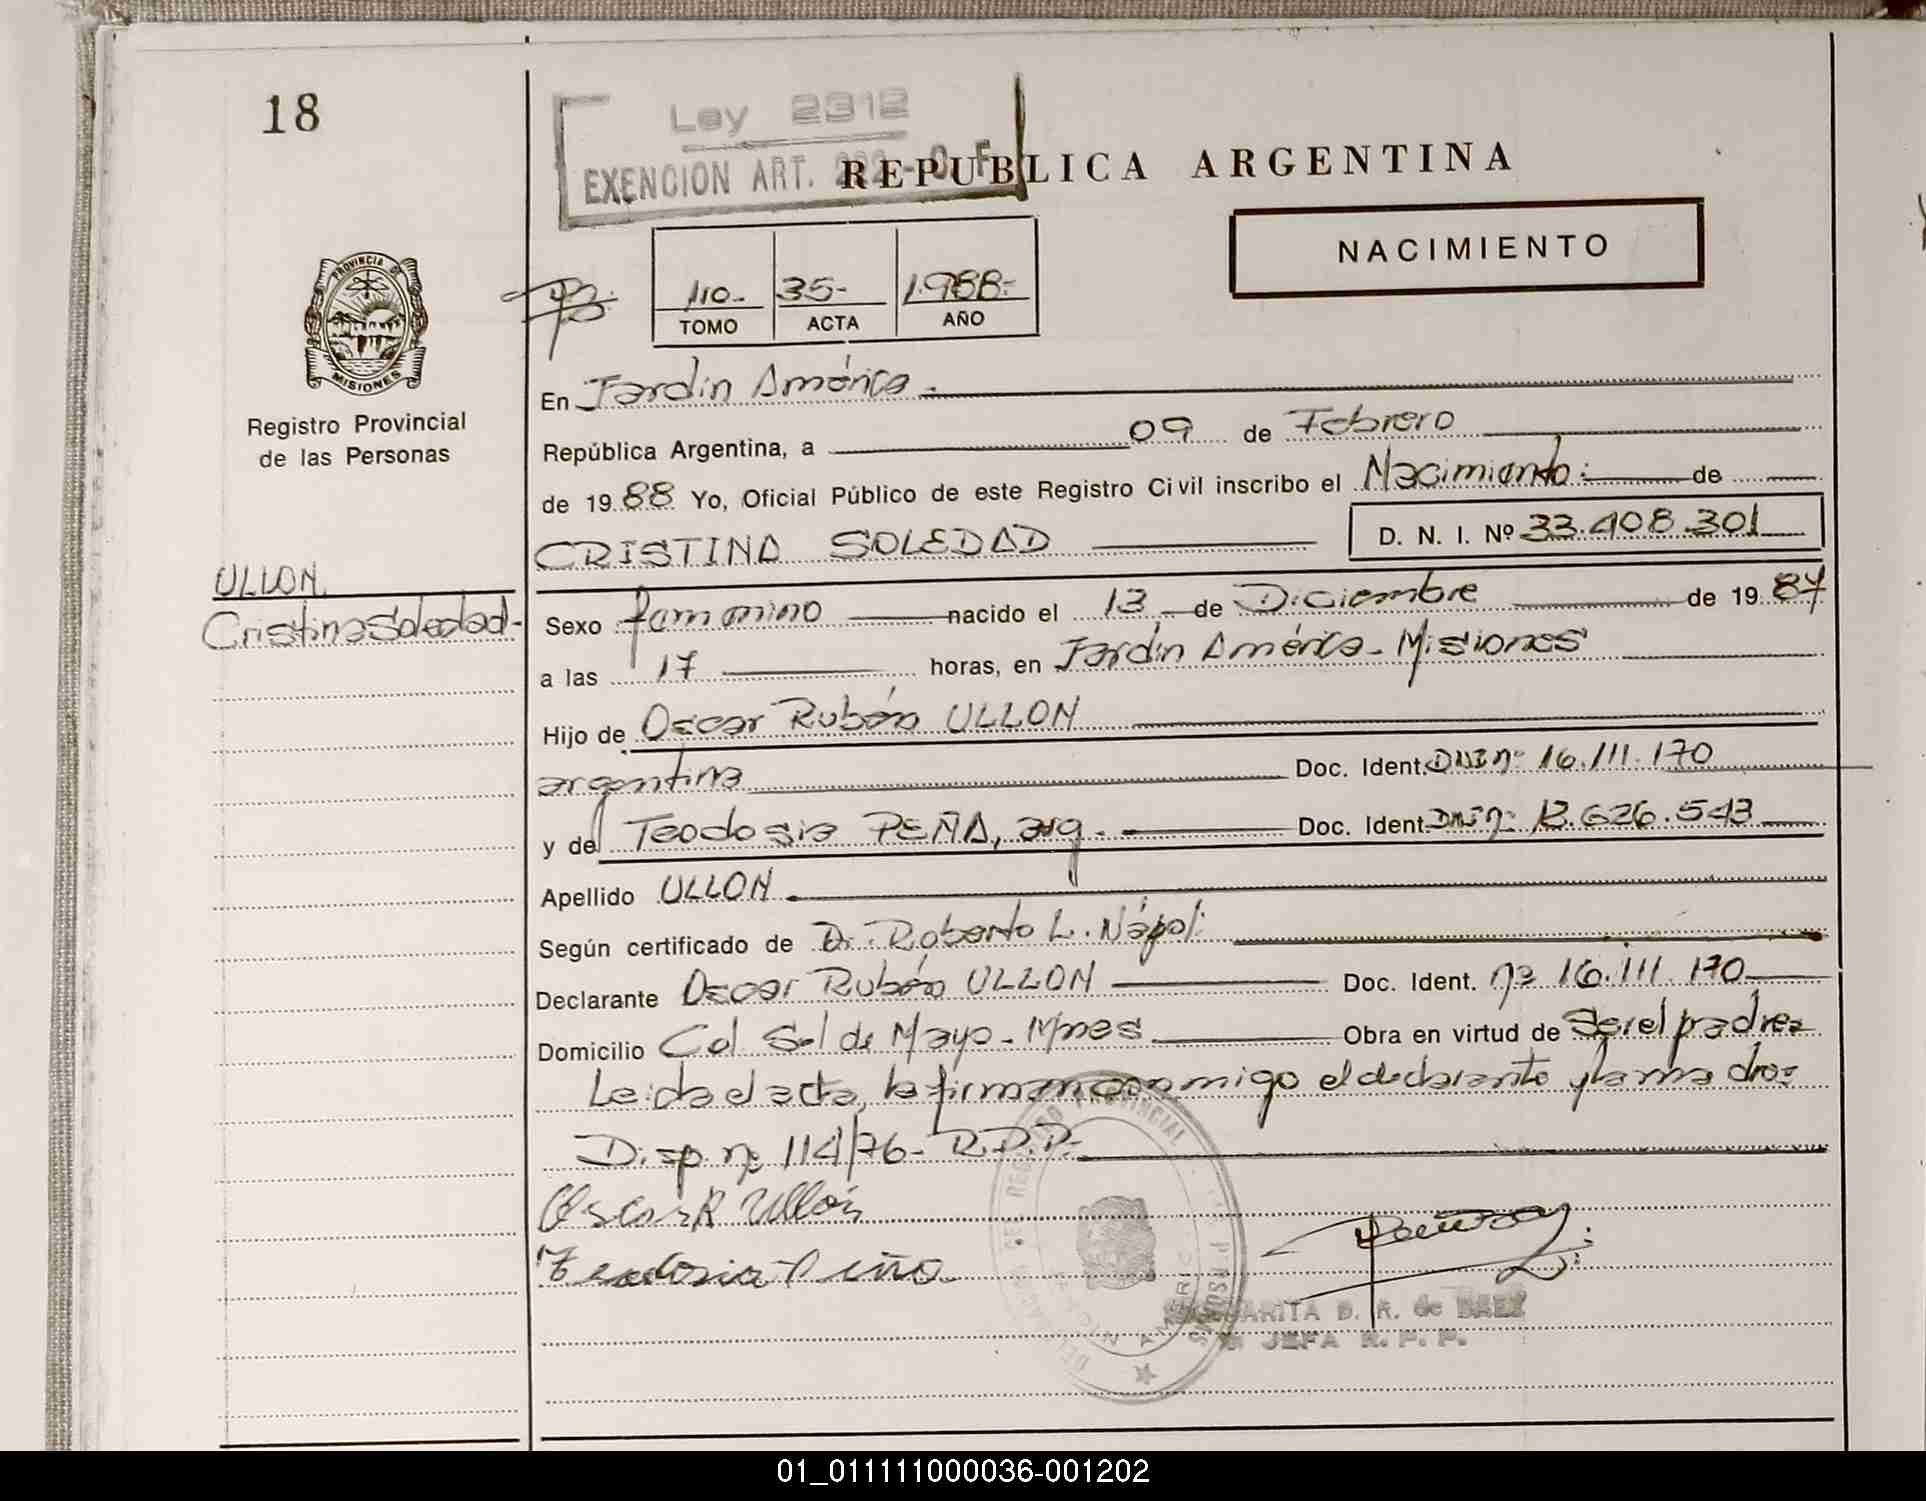 18
Ley 2312
EXENCION ART.
REPUBLICA ARGENTINA
NACIMIENTO
110.- 35- 1.988.-
TOMO ACTA AÑO
PROVINCIA DE
MISIONES
Registro Provincial
de las Personas
ULLON
Cristina Soledad-
En Jardín América.-
República Argentina, a 09 de Febrero
de 1988 Yo, Oficial Público de este Registro Civil inscribo el Nacimiento: de
CRISTINA SOLEDAD D. N. I. Nº 33.408.301
Sexo femenino nacido el 13 de Diciembre de 1987
a las 17 horas, en Jardín América- Misiones
Hijo de Oscar Rubén ULLON
argentina Doc. Ident. DNI nº 16.111.170
y de Teodosia PEÑA, arg. Doc. Ident. DNI nº .626.543
Apellido ULLON
Según certificado de Dr. Roberto L. Nápoli
Declarante Oscar Rubén ULLON Doc. Ident. nº 16.111.170
Domicilio Col Sol de Mayo- Mnes Obra en virtud de ser el padre
Leida el acta, la firman conmigo el declarante y la madre
Disp. nº 114/76- R.P.P.-
Oscar R Ullón
Teodosia Peña
REGISTRO PROVINCIAL
MARGARITA B. R. de BAEZ
JEFA R. P. P.
01_011111000036-001202